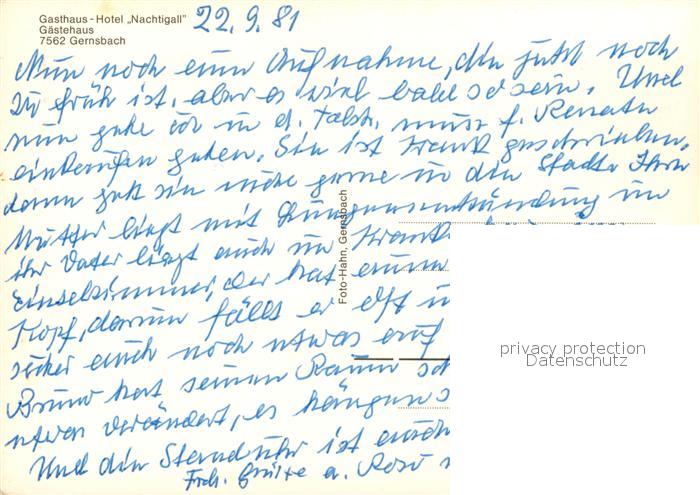 Gasthaus - Hotel „Nachtigall"
Gästehaus
7562 Gernsbach
22.9.81
Nun noch eine Aufnahme, die jetzt noch
zu früh ist, aber es wird bald so sein. Und
nun gehe ich in d. Talstr. muss f. Renate
einkaufen gehen. Sie ist krank geschrieben,
dann geht sie nicht gerne in die Stadt. Ihre
Mutter liegt mit Lungenentzündung im
ihr Vater liegt auch im Krank
Einzelzimmer, der hat einen
Kopf, darum fällt er oft u
sicher auch noch etwas auf
Bruno hat seinen Raum sch
etwas verändert, es hängen s
Und die Standuhr ist auch
Frdl. Grüße a. Rosi
Foto-Hahn, Gernsbach
privacy protection
Datenschutz